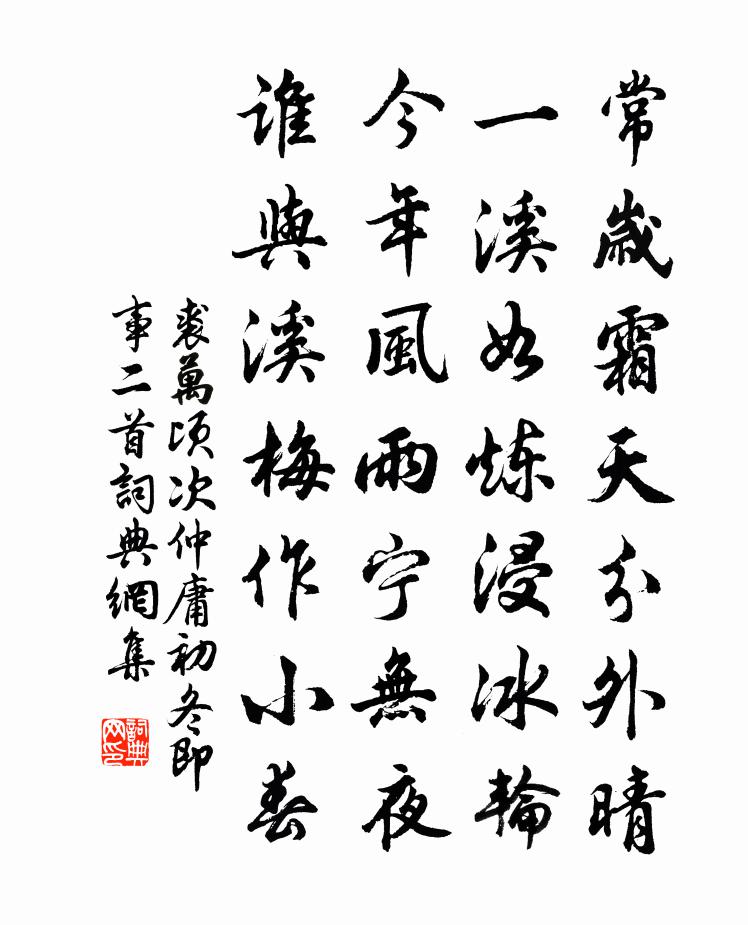 常歲霜天分外晴
一溪如炼浸冰輪
今年風雨宁無夜
誰與溪梅作小春
裘萬頃次仲庸初冬即
事二首詞典網集
詞典网印